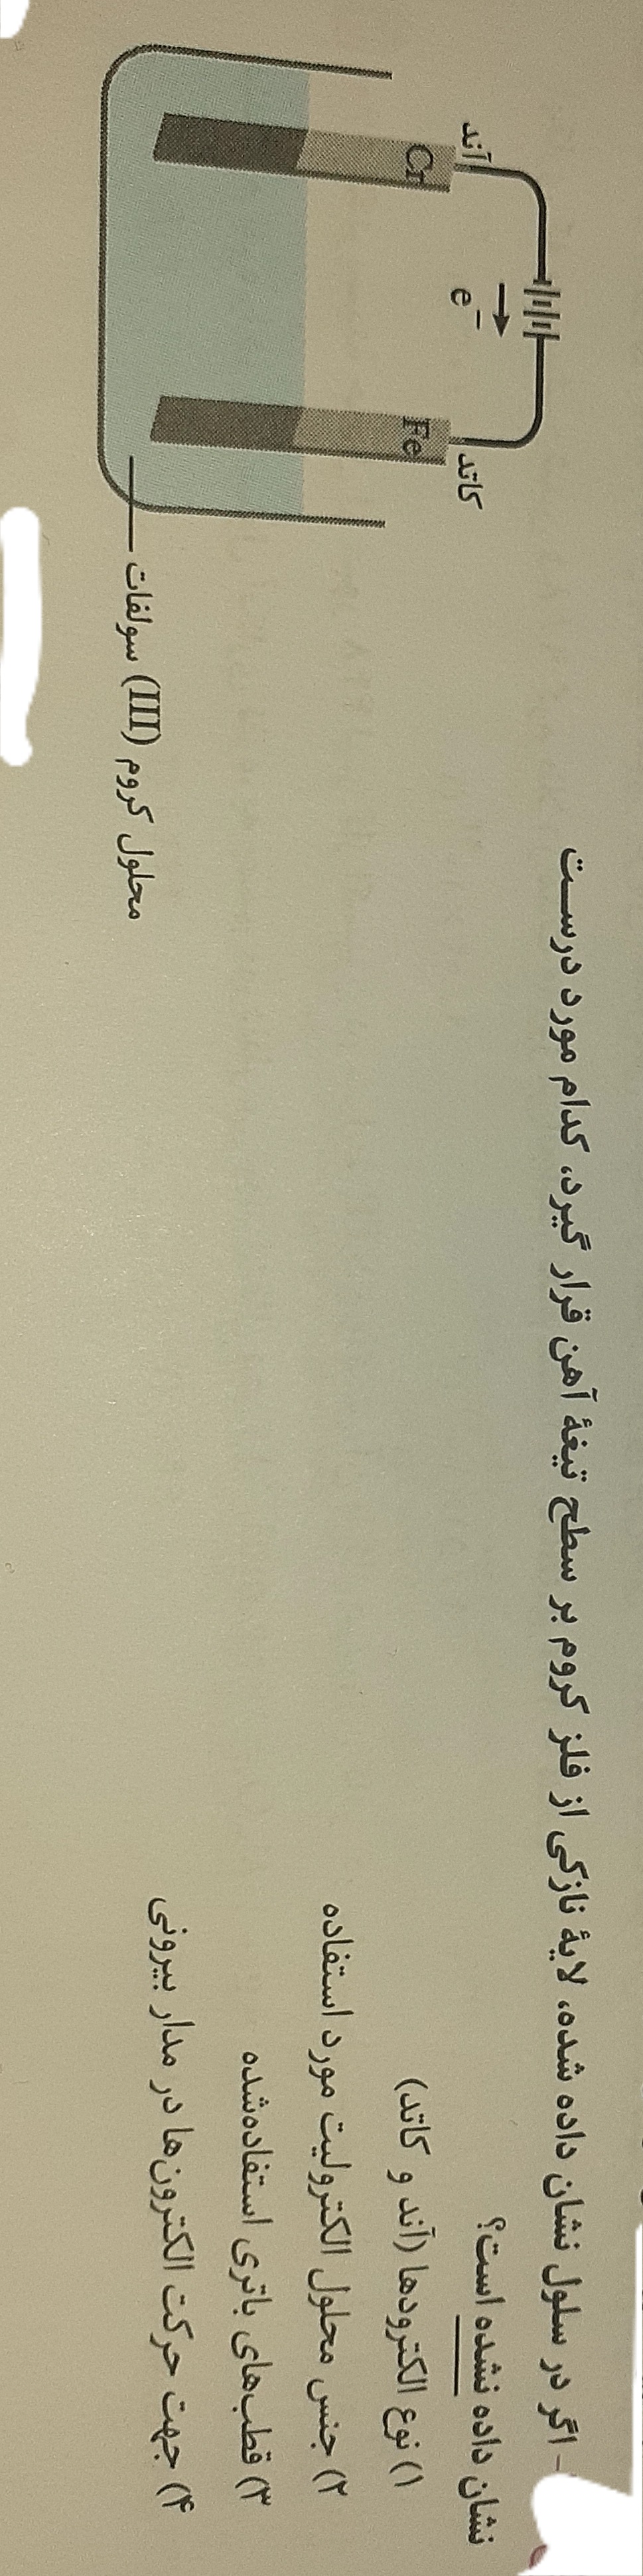 - اگر در سلول نشان داده شده، لایۀ نازکی از فلز کروم بر سطح تیغۀ آهن قرار گیرد، کدام مورد درست
نشان داده نشده است؟
۱) نوع الکترودها (آند و کاتد)
۲) جنس محلول الکترولیت مورد استفاده
۳) قطب‌های باتری استفاده‌شده
۴) جهت حرکت الکترون‌ها در مدار بیرونی
e⁻
آند
کاتد
Cr
Fe
محلول کروم (III) سولفات